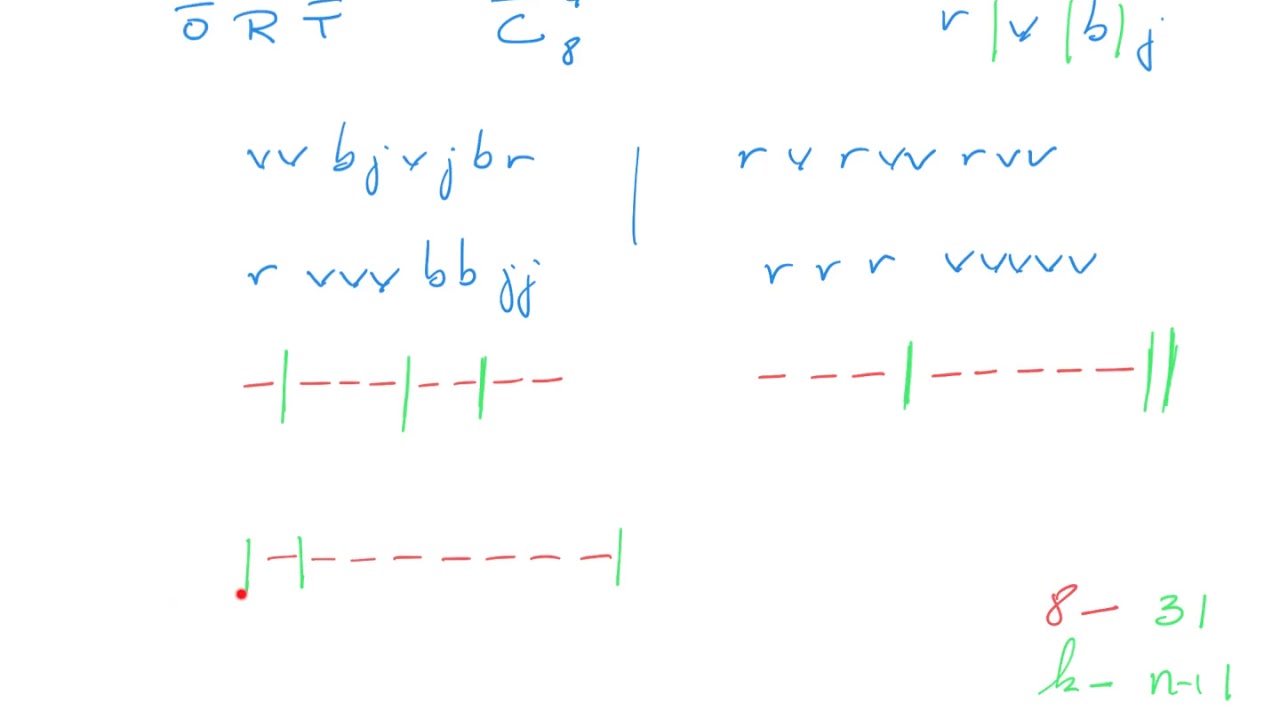 O̅ R̅ T̅ C̅ 8 r | v | b | j
vv bjvjbr | r v r vv r vv
r vvv bb jj r r r vvvvv
—|———|——|—— ———|—————||
|—|———————|
8 — 3 |
k — n-1 |